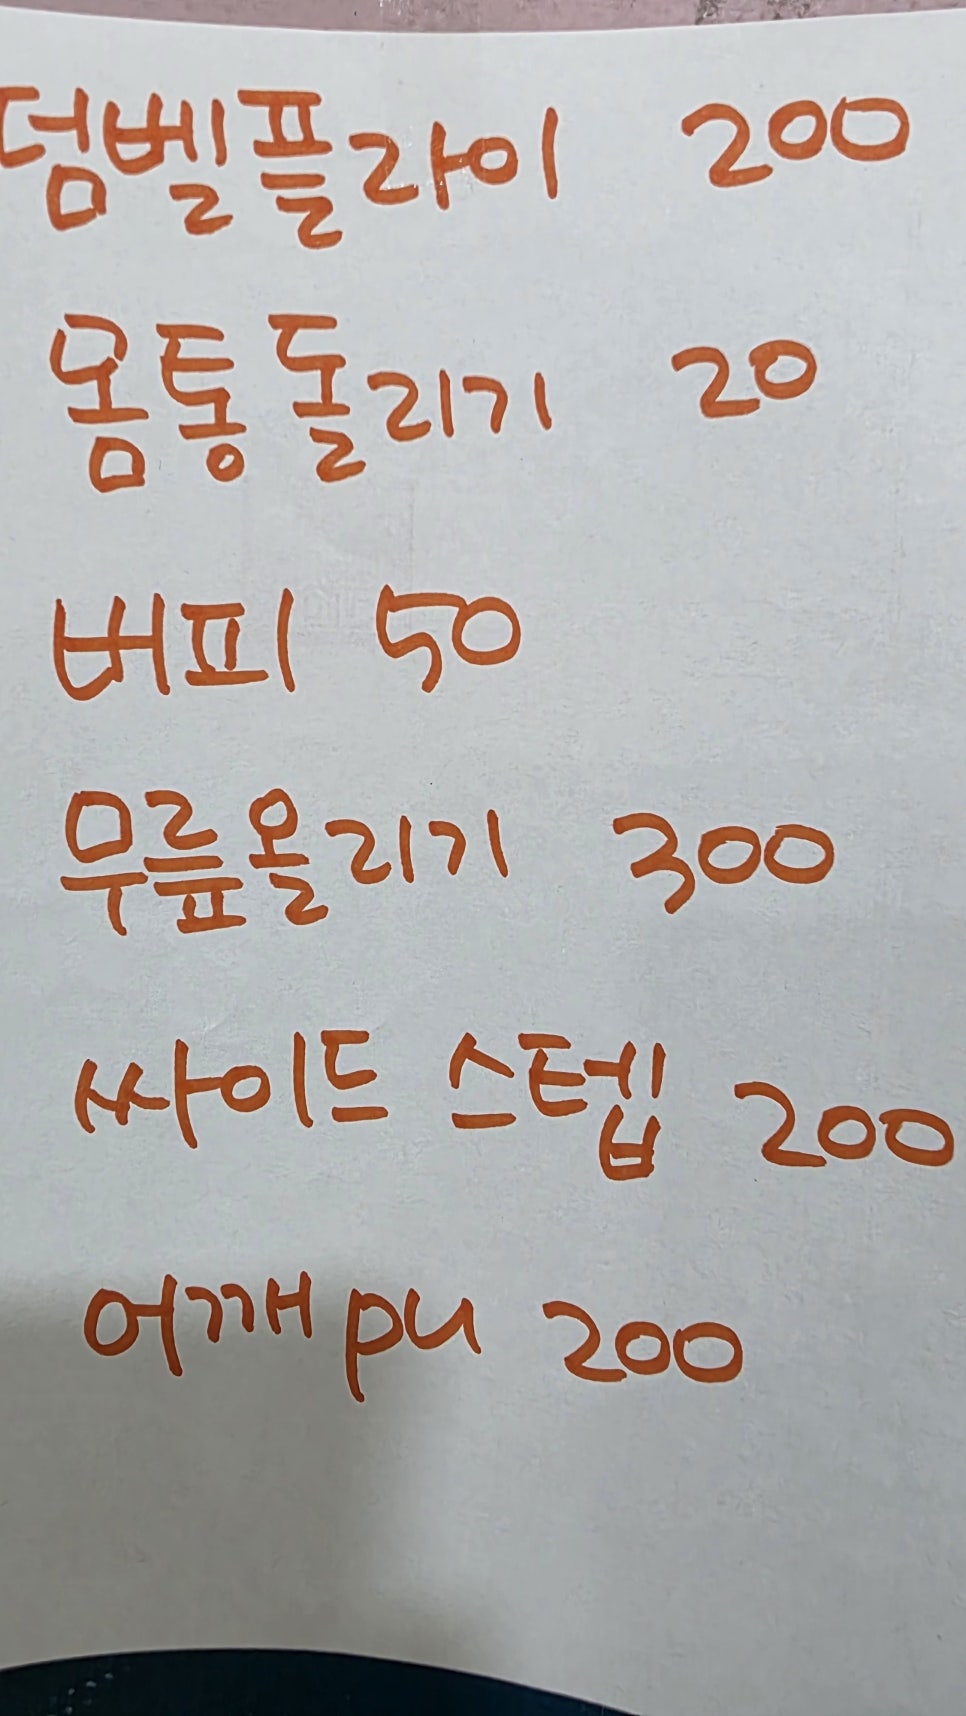 덤벨플라이 200
몸통돌리기 20
버피 50
무릎올리기 300
싸이드 스텝 200
어깨pu 200